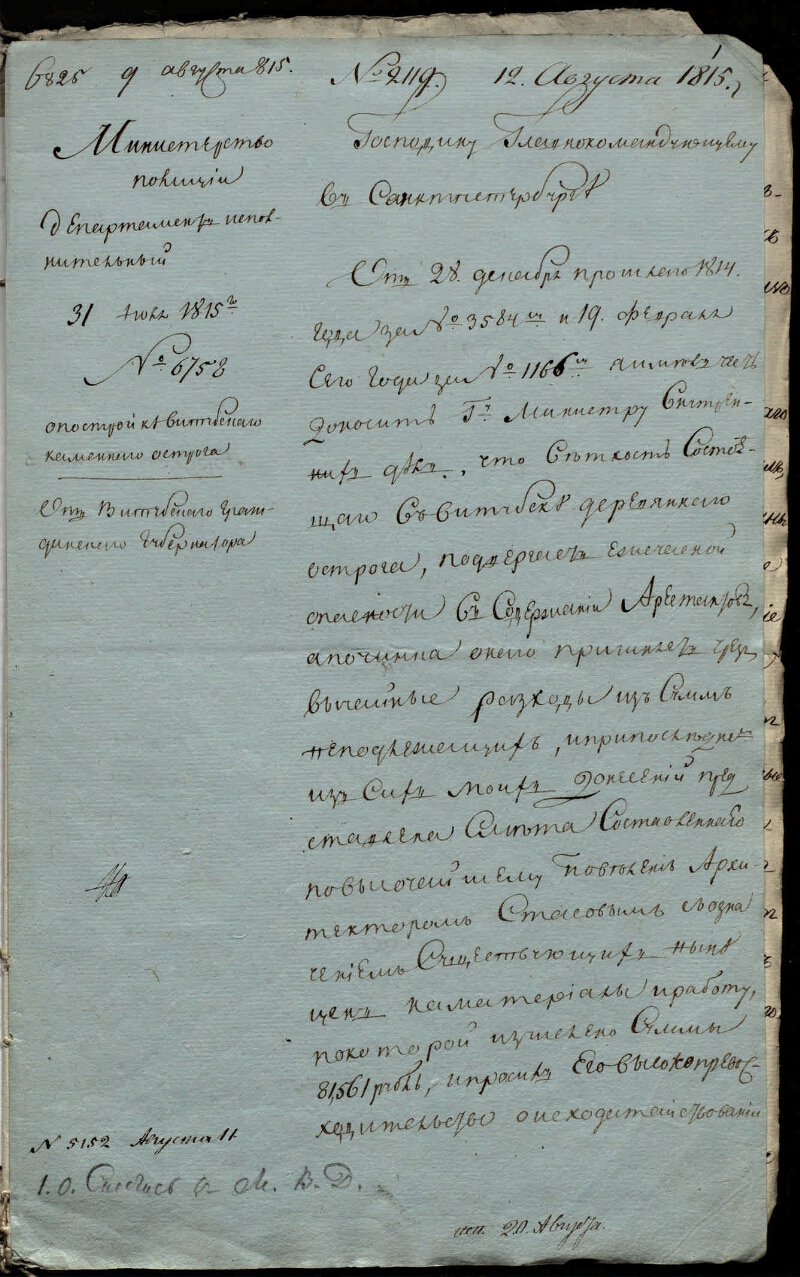 6825 9 августа 815. № 2119. 12. Августа 1815.
1
Министерство
полиціи
департаментъ испол-
нительный
31 Іюля 1815го
№ 6758
о постройкѣ витебскаго
каменнаго острога
Отъ Витебскаго Граж-
данскаго Губернатора
Господину Главнокомандующему
въ Санктпетербургѣ
Отъ 28. декабря прошлаго 1814.
года за № 3584мъ и 19. февраля
сего года за № 1166мъ я имѣлъ честь
доносить Гу Министру Внутрен-
нихъ дѣлъ, что вѣтхость состоя-
щаго въ витебскѣ деревяннаго
острога, подвергаетъ ежечасной
опасности въ содержаніи Арестантовъ,
а починка онаго причиняетъ чрез
вычайные расходы изъ суммъ
неподлежащихъ, и при последне
изъ сихъ моихъ донесеній пред
ставлена смѣта составленнаго
по высочайшему повелѣнію Архи-
текторомъ Стасовымъ съ озна
ченіемъ существующихъ нынѣ
ценъ на матеріалы и работу,
по которой изчислено суммы
81,561 рубль, и просилъ Его высокопревос-
ходительство о исходатайствованіи
N 5152 Августа 11
20. Августа.